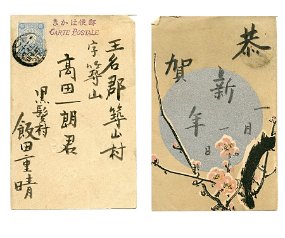 きかは便郵
CARTE POSTALE
玉名郡築山村
字築山
高田一朗君
黒髪村
飯田重晴
恭
賀
新
年
一月
一日